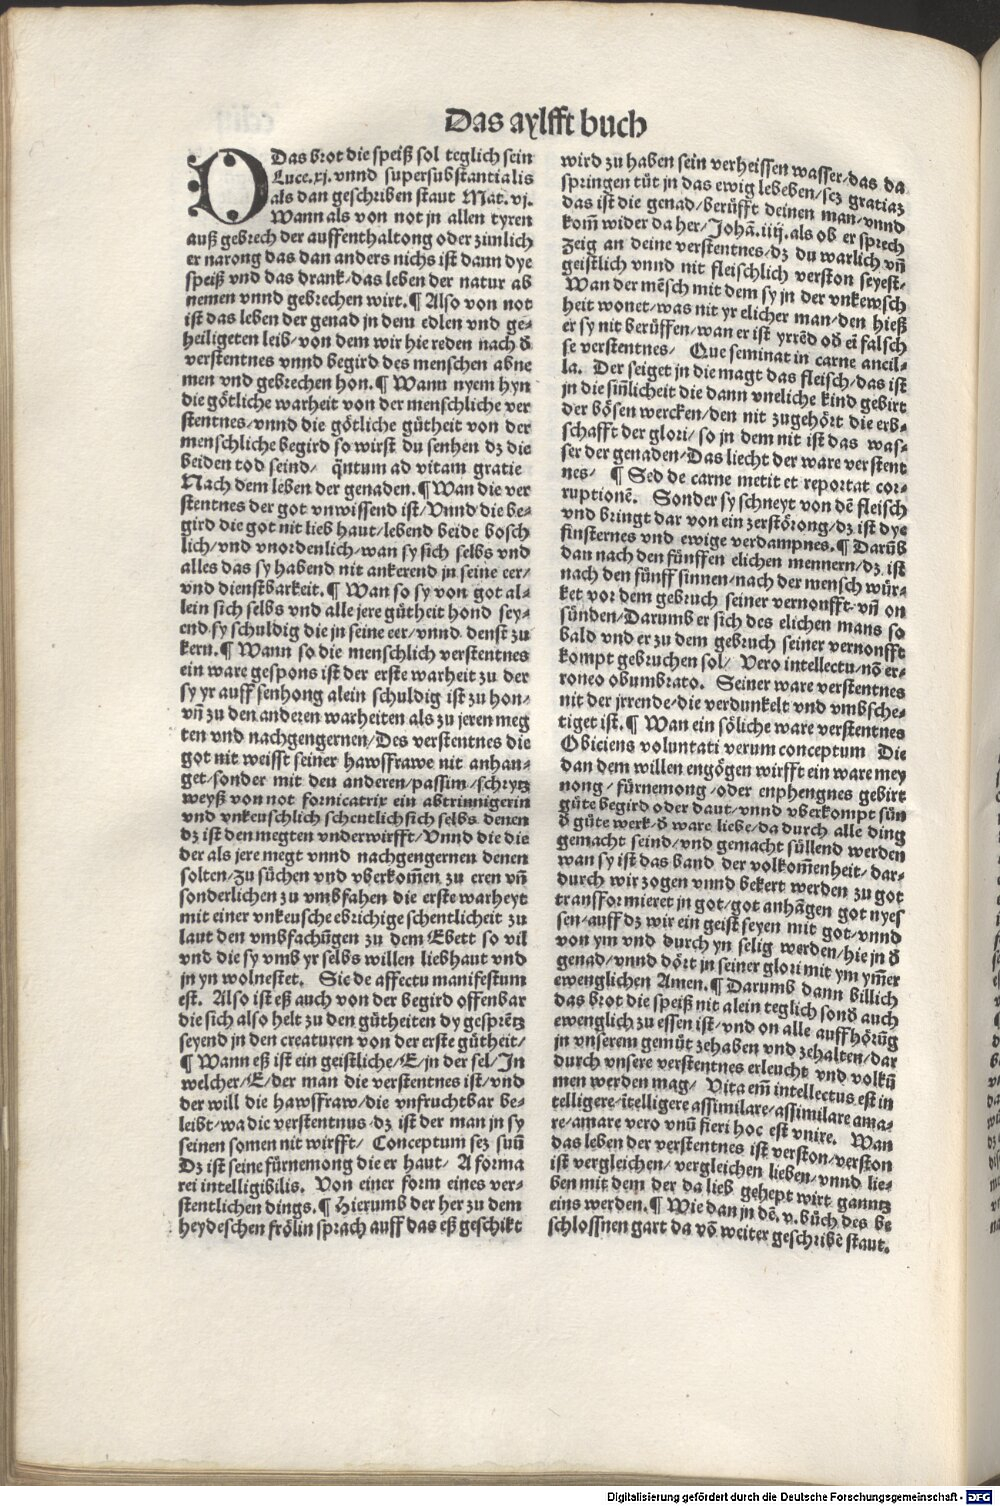 Das aylfft buch
D Das brot die speiß sol teglich sein
Luce.xj. vnnd supersubstantialis
als dan geschriben staut Mat.vj.
Wann als von not jn allen tyren
auß gebrech der auffenthaltong oder zimlich
er narong das dan anders nichs ist dann dye
speiß vnd das drank/das leben der natur ab
nemen vnnd gebrechen wirt.¶ Also von not
ist das leben der genad jn dem edlen vnd ge⸗
heiligeten leib/von dem wir hie reden nach d̕
verstentnes vnnd begird des menschen abne
men vnd gebrechen hon.¶ Wann nyem hyn
die götliche warheit von der menschliche ver
stentnes/vnnd die götliche gütheit von der
menschliche begird so wirst du senhen dz die
beiden tod seind/ q̄ntum ad vitam gratie
Nach dem leben der genaden.¶ Wan die ver
stentnes der got vnwissend ist/Vnnd die be⸗
gird die got nit lieb haut/lebend beide bosch
lich/vnd vnordenlich/wan sy sich selbs vnd
alles das sy habend nit ankerend jn seine eer/
vnd dienstbarkeit.¶ Wan so sy von got al⸗
lein sich selbs vnd alle jere gütheit hond sey⸗
end sy schuldig die jn seine eer/vnnd denst zu
kern.¶ Wann so die menschlich verstentnes
ein ware gespons ist der erste warheit zu der
sy yr auff senhong alein schuldig ist zu hon/
vn̄ zu den anderen warheiten als zu jeren meg
ten vnd nachgengernen/Des verstentnes die
got nit weisst seiner hawsfrawe nit anhan⸗
get/sonder mit den anderen/passim/schrytz
weyß von not fornicatrix ein abtrinnigerin
vnd vnkeuschlich schentlich sich selbs denen
dz ist den megten vnderwirfft/Vnnd die die
der als jere megt vnnd nachgengernen denen
solten/zu süchen vnd vberkom̄en zu eren vn̄
sonderlichen zu vmbfahen die erste warheyt
mit einer vnkeusche ebrichige schentlicheit zu
laut den vmbfachūgen zu dem Ebett so vil
vnd die sy vmb yr selbs willen liebhaut vnd
jn yn wolnestet. Sic de affectu manifestum
est. Also ist eß auch von der begird offenbar
die sich also helt zu den gütheiten dy gesprētz
seyend jn den creaturen von der erste gütheit/
¶ Wann eß ist ein geistliche/E/jn der sel/In
welcher/E/der man die verstentnes ist/vnd
der will die hawsfraw/die vnfruchtbar be⸗
leibt/wa die verstentnus/dz ist der man jn sy
seinen somen nit wirfft/ Conceptum sez suū
Dz ist seine fürnemong die er haut/ A forma
rei intelligibilis. Von einer form eines ver⸗
stentlichen dings.¶ Hierumb der her zu dem
heydeschen frölin sprach auff das eß geschikt
wird zu haben sein verheissen wasser/das da
springen tüt jn das ewig lebeben/sez gratiaz
das ist die genad/berüfft deinen man/vnnd
kom̄ wider da her/Johā.iiij.als ob er sprech
Zeig an deine verstentnes/dz du warlich vn̄
geistlich vnnd nit fleischlich verston seyest⸗
Wan der mēsch mit dem sy jn der vnkewsch
heit wonet/was nit yr elicher man/den hieß
er sy nit berüffen/wan er ist yrrēd od̕ ei falsch
se verstentnes/ Que seminat in carne ancil⸗
la. Der seiget jn die magt das fleisch/das ist
jn die sin̄licheit die dann vneliche kind gebirt
der bösen wercken/den nit zugehört die erb⸗
schafft der glori/so jn dem nit ist das was⸗
ser der genaden/Das liecht der ware verstent
nes/ ¶ Sed de carne metit et reportat cor⸗
ruptionē. Sonder sy schneyt von dē fleisch
vnd bringt dar von ein zerstörong/dz ist dye
finsternes vnd ewige verdampnes.¶ Darūb
dan nach den fünffen elichen mennern/dz ist
nach den fünff sinnen/nach der mensch wür⸗
ket vor dem gebruch seiner vernonfft/vn̄ on
sünden/Darumb er sich des elichen mans so
bald vnd er zu dem gebruch seiner vernonfft
kompt gebruchen sol/ Vero intellectu/nō er⸗
roneo obumbrato. Seiner ware verstentnes
nit der jrrende/die verdunkelt vnd vmbsche⸗
tiget ist.¶ Wan ein söliche ware verstentnes
Obiciens voluntati verum conceptum Die
dan dem willen engögen wirfft ein ware mey
nong/fürnemong/oder enphengnes gebirt
güte begird oder daut/vnnd vberkompt sün
d̕ güte werk/d̕ ware liebe/da durch alle ding
gemacht seind/vnd gemacht süllend werden
wan sy ist das band der volkom̄enheit/dar⸗
durch wir zogen vnnd bekert werden zu got
transformieret jn got/got anhāgen got nyes
sen/auff dz wir ein geist seyen mit got/vnnd
von ym vnd durch yn selig werden/hie jn d̕
genad/vnnd dört jn seiner glori mit ym ym̄er
ewenglichen Amen.¶ Darumb dann billich
das brot die speiß nit alein teglich sond̕ auch
ewenglich zu essen ist/vnd on alle auffhörūg
jn vnserem gemüt zehaben vnd zehalten/dar
durch vnsere verstentnes erleucht vnd volkū
men werden mag/ Vita em̄ intellectus est in
telligere/ītelligere assimilare/assimilare ama⸗
re/amare vero vnū fieri hoc est vnire. Wan
das leben der verstentnes ist verston/verston
ist vergleichen/vergleichen lieben/vnnd lie⸗
ben mit dem der da lieb gehept wirt ganntz
eins werden.¶ Wie dan jn dē.v.büch des be
schlossnen gart da vō weiter geschribē staut.
Digitalisierung gefördert durch die Deutsche Forschungsgemeinschaft - DFG